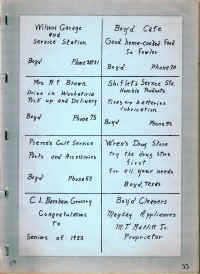 Wilson Garage
and
Service Station
Boyd Phone
Boyd Cafe
Good home-cooked Food
Boyd Phone 70
Mrs. H F Brown
Drive in Washateria
Pick up and Delivery
Boyd Phone 75
Shiflet's Service Sta.
Humble Products
Fires, batteries
Lubrication
Boyd Phone 95
Pierce's Gulf Service
Parts and Accessories
Boyd Phone 68
Wren's Drug Store
try the drug store
first
for all your needs
Boyd, Texas
C. L. Grocery
Congratulations
to
Seniors of 1953
Boyd Cleaners
Maytag Appliances
Proprietor
33